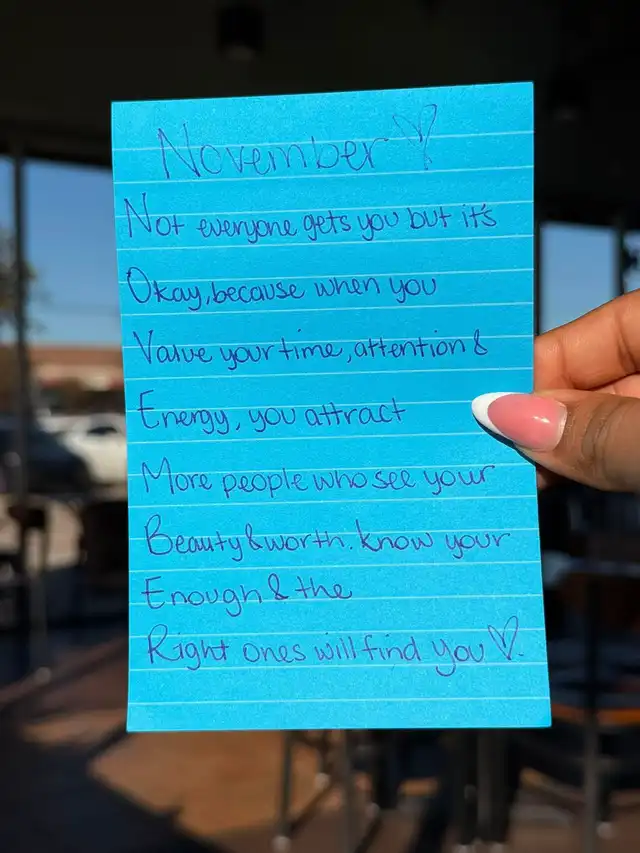 November ♡
Not everyone gets you but it's
Okay, because when you
Value your time, attention &
Energy, you attract
More people who see your
Beauty & worth. know your
Enough & the
Right ones will find you ♡.